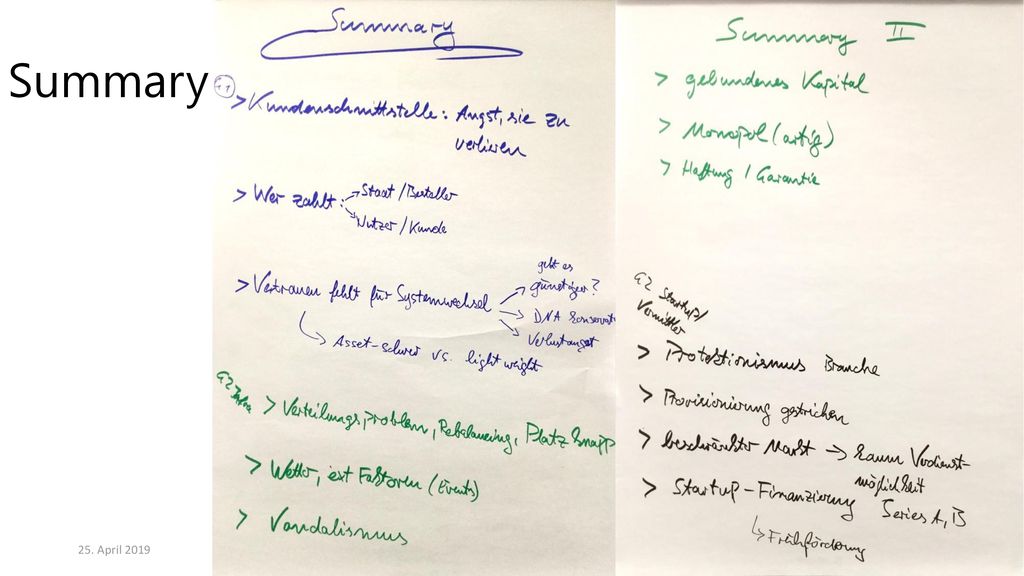 Summary
Summary
> Kundenschnittstelle: Angst, sie zu
verlieren
> Wer zahlt:
Staat / Besteller
Nutzer / Kunde
> Vertrauen fehlt für Systemwechsel
gibt es
günstiger?
DNA konservati
Verlustangst
Asset-schwer vs. light weight
G2 Infra
> Verteilungsproblem, Rebalancing, Platz knapp
> Wetter, ext Faktoren (Events)
> Vandalismus
Summary II
> gebundenes Kapital
> Monopol (artig)
> Haftung / Garantie
G2 Startup/
Vermittler
> Protektionismus Branche
> Provisionierung gestrichen
> beschränkter Markt → kaum Verdienst-
möglichkeit
> Startup-Finanzierung Series A, B
Frühförderung
25. April 2019